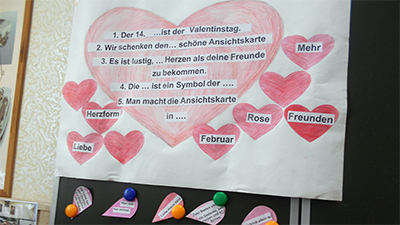 1. Der 14. ...ist der Valentinstag.
2. Wir schenken den... schöne Ansichtskarte
3. Es ist lustig, ... Herzen als deine Freunde
zu bekommen.
4. Die ... ist ein Symbol der ....
5. Man macht die Ansichtskarte
in ....
Mehr
Herzform
Rose
Freunden
Februar
Liebe